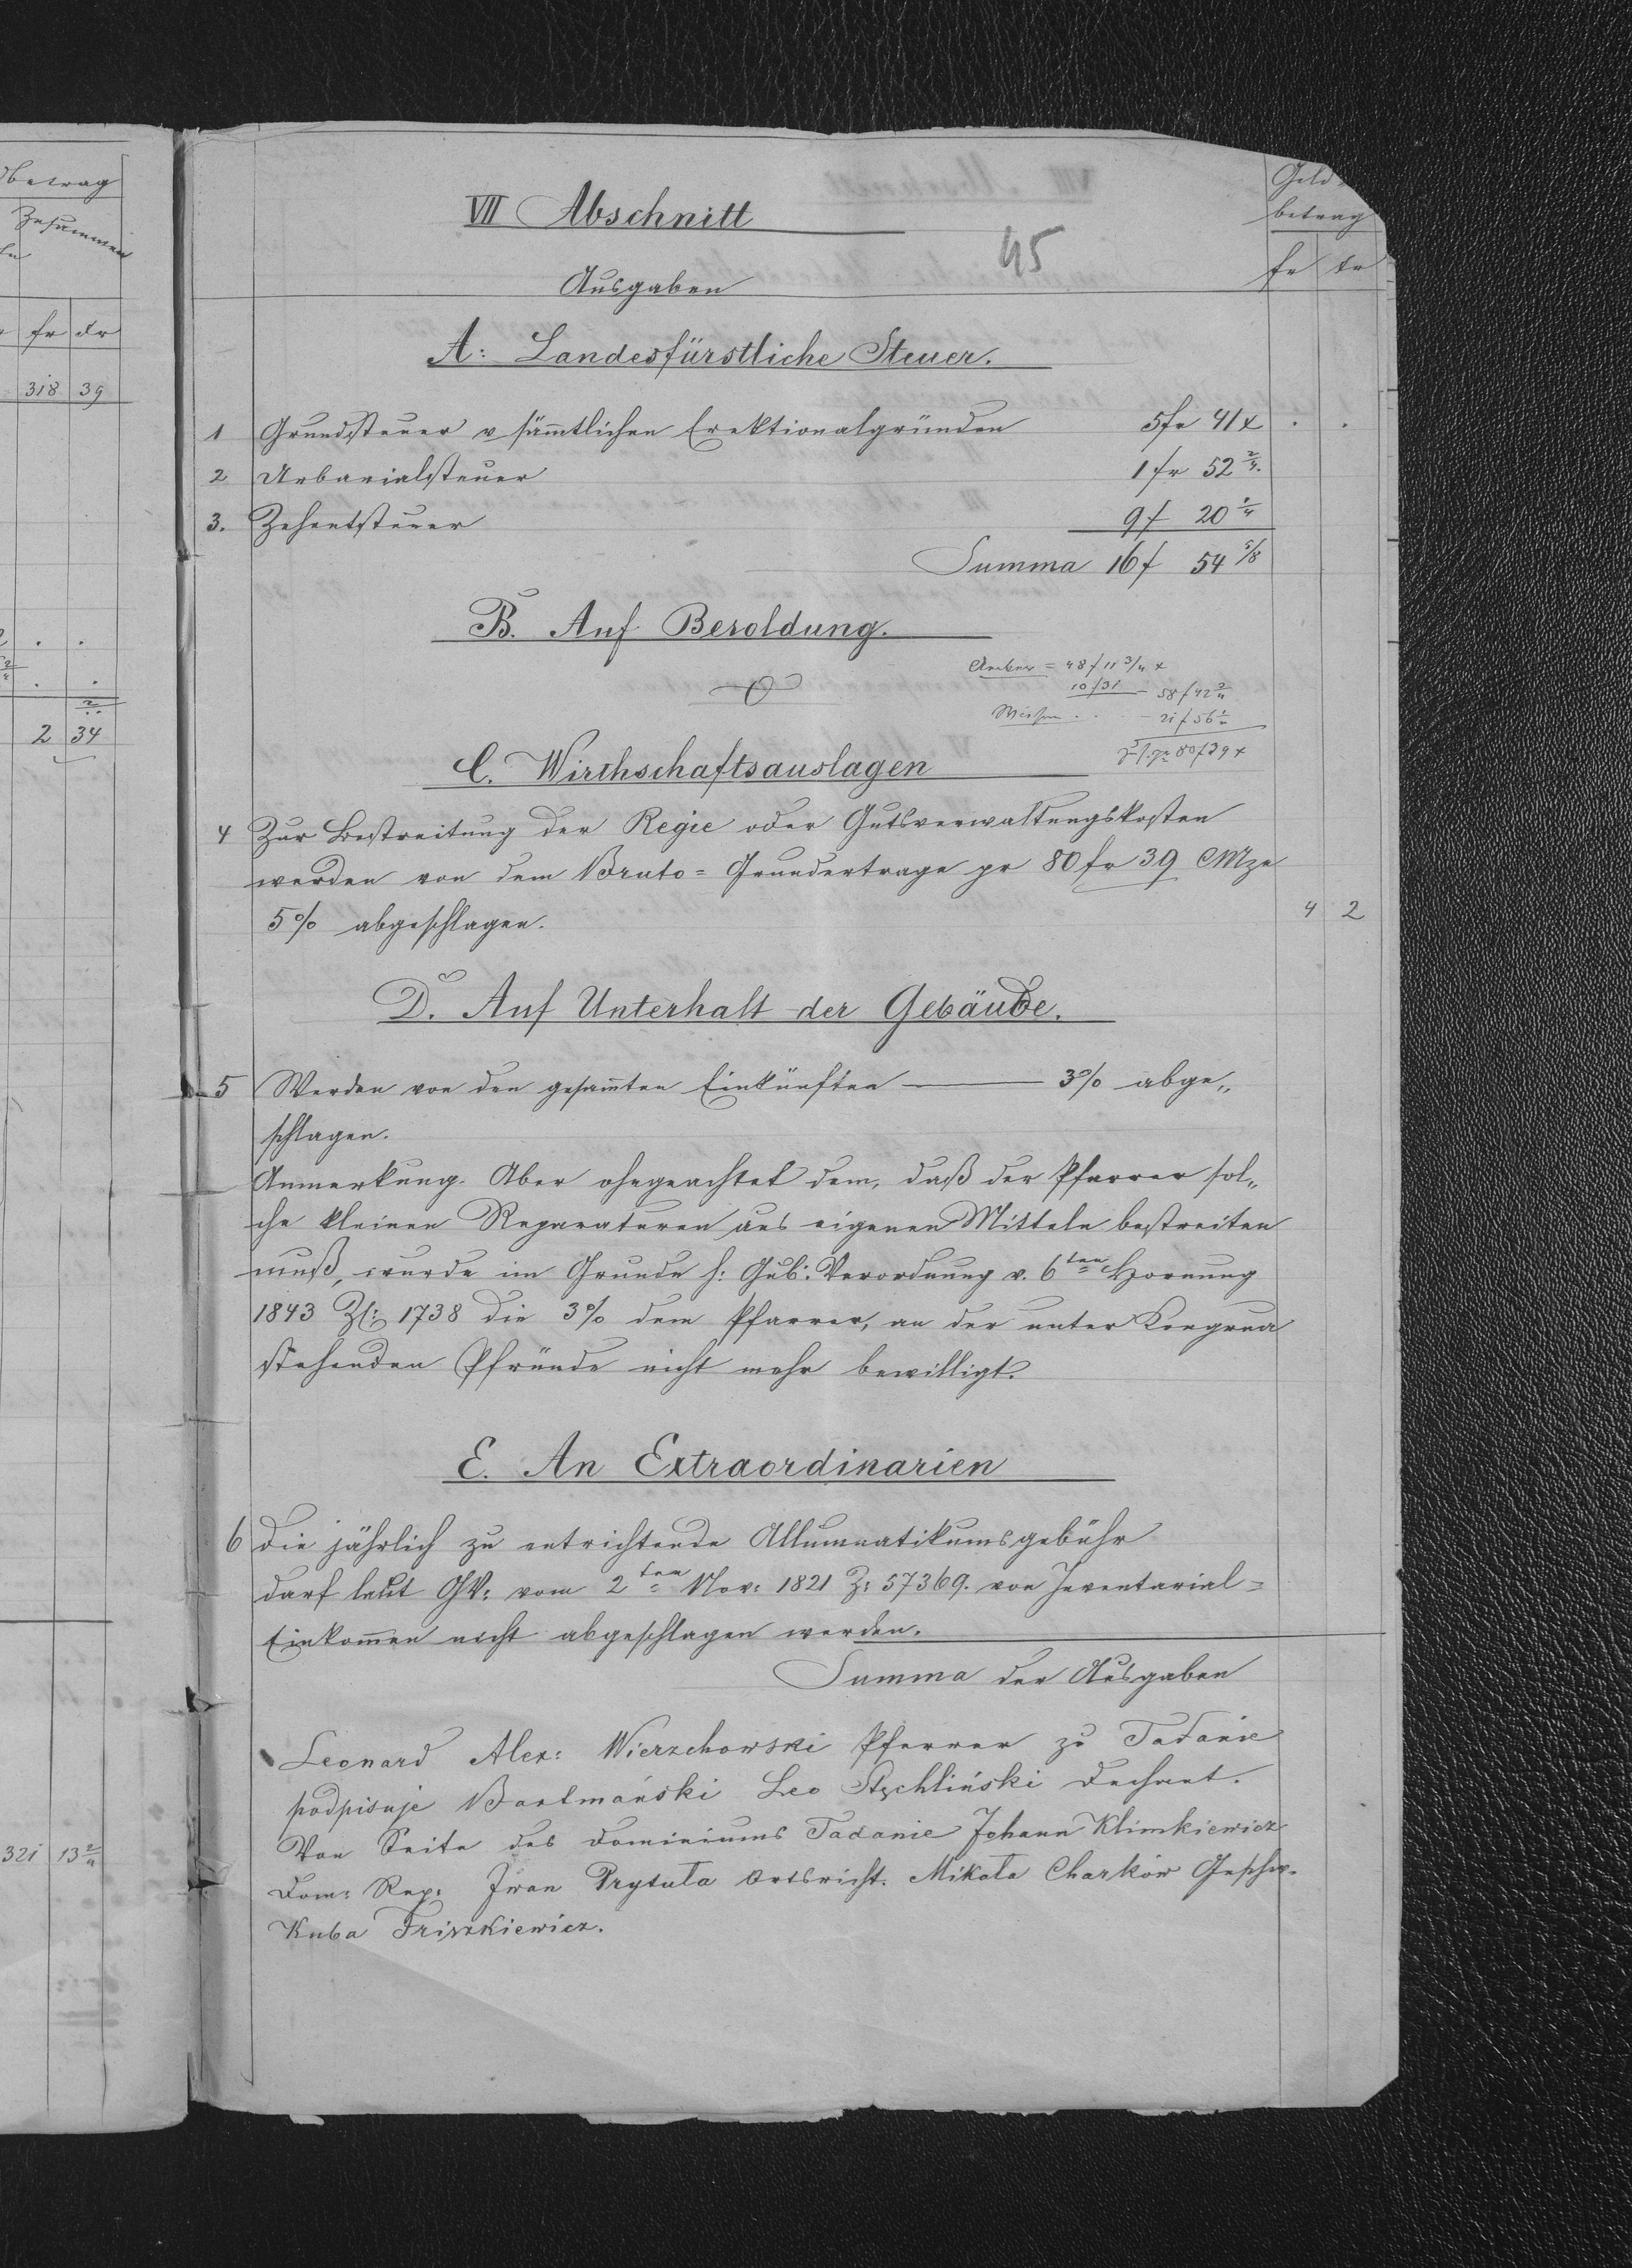 betrag
Zusammen
fr | xr
318 | 39
2 | 34
321 | 13 2/4
VII Abschnitt
45
Geld-
betrag
fr | xr
Ausgaben
A: Landesfürstliche Steuer.
1 Grundsteuer v sämtlichen Erektionalgründen 5 fr 41 x
2 Urbarialsteuer 1 fr 52 2/4.
3. Zehentsteuer 9 f 20 1/4
Summa 16 f 54 5/8
B. Auf Besoldung.
O
Aecker = 48 f 11 3/4 x
10 f 31 — 58 f 42 3/4
Wiesen . . — 21 f 56 1/4
80 f 39 x
C. Wirthschaftsauslagen
4 Zur Bestreitung der Regie oder Gutsverwaltungskosten
werden von dem Bruto = Grundertrage pr 80 fr 39 CMze
5% abgeschlagen. 4 | 2
D. Auf Unterhalt der Gebäude.
5 Werden von den gesamten Einkünften — 3% abge„
schlagen.
Anmerkung. Aber ohngeachtet dem, daß der Pfarrer sol„
che kleinen Reparaturen aus eigenen Mitteln bestreiten
muß, wurde im Grunde h: Gub: Verordnung v. 6ten Hornung
1843 Zl: 1738 die 3% dem Pfarrer, an der unter Kongrua
stehenden Pfründe nicht mehr bewilligt.
E. An Extraordinarien
6 Die jährlich zu entrichtende Allumnatikumsgebühr
darf laut GV: vom 2ten Nov: 1821 Z: 57369. von Inventarial =
Einkomen nicht abgeschlagen werden.
Summa der Ausgaben
Leonard Alex: Wierzchowski Pfarrer zu Tadanie
podpisuje Bartmański Leo Stychliński Dechant.
Von Seite des Dominiums Tadanie Johann Klimkiewicz
Dom: Rep: Iwan Prytuła Ortsricht. Mikoła Charków Geschw.
Kuba Friszkiewicz.